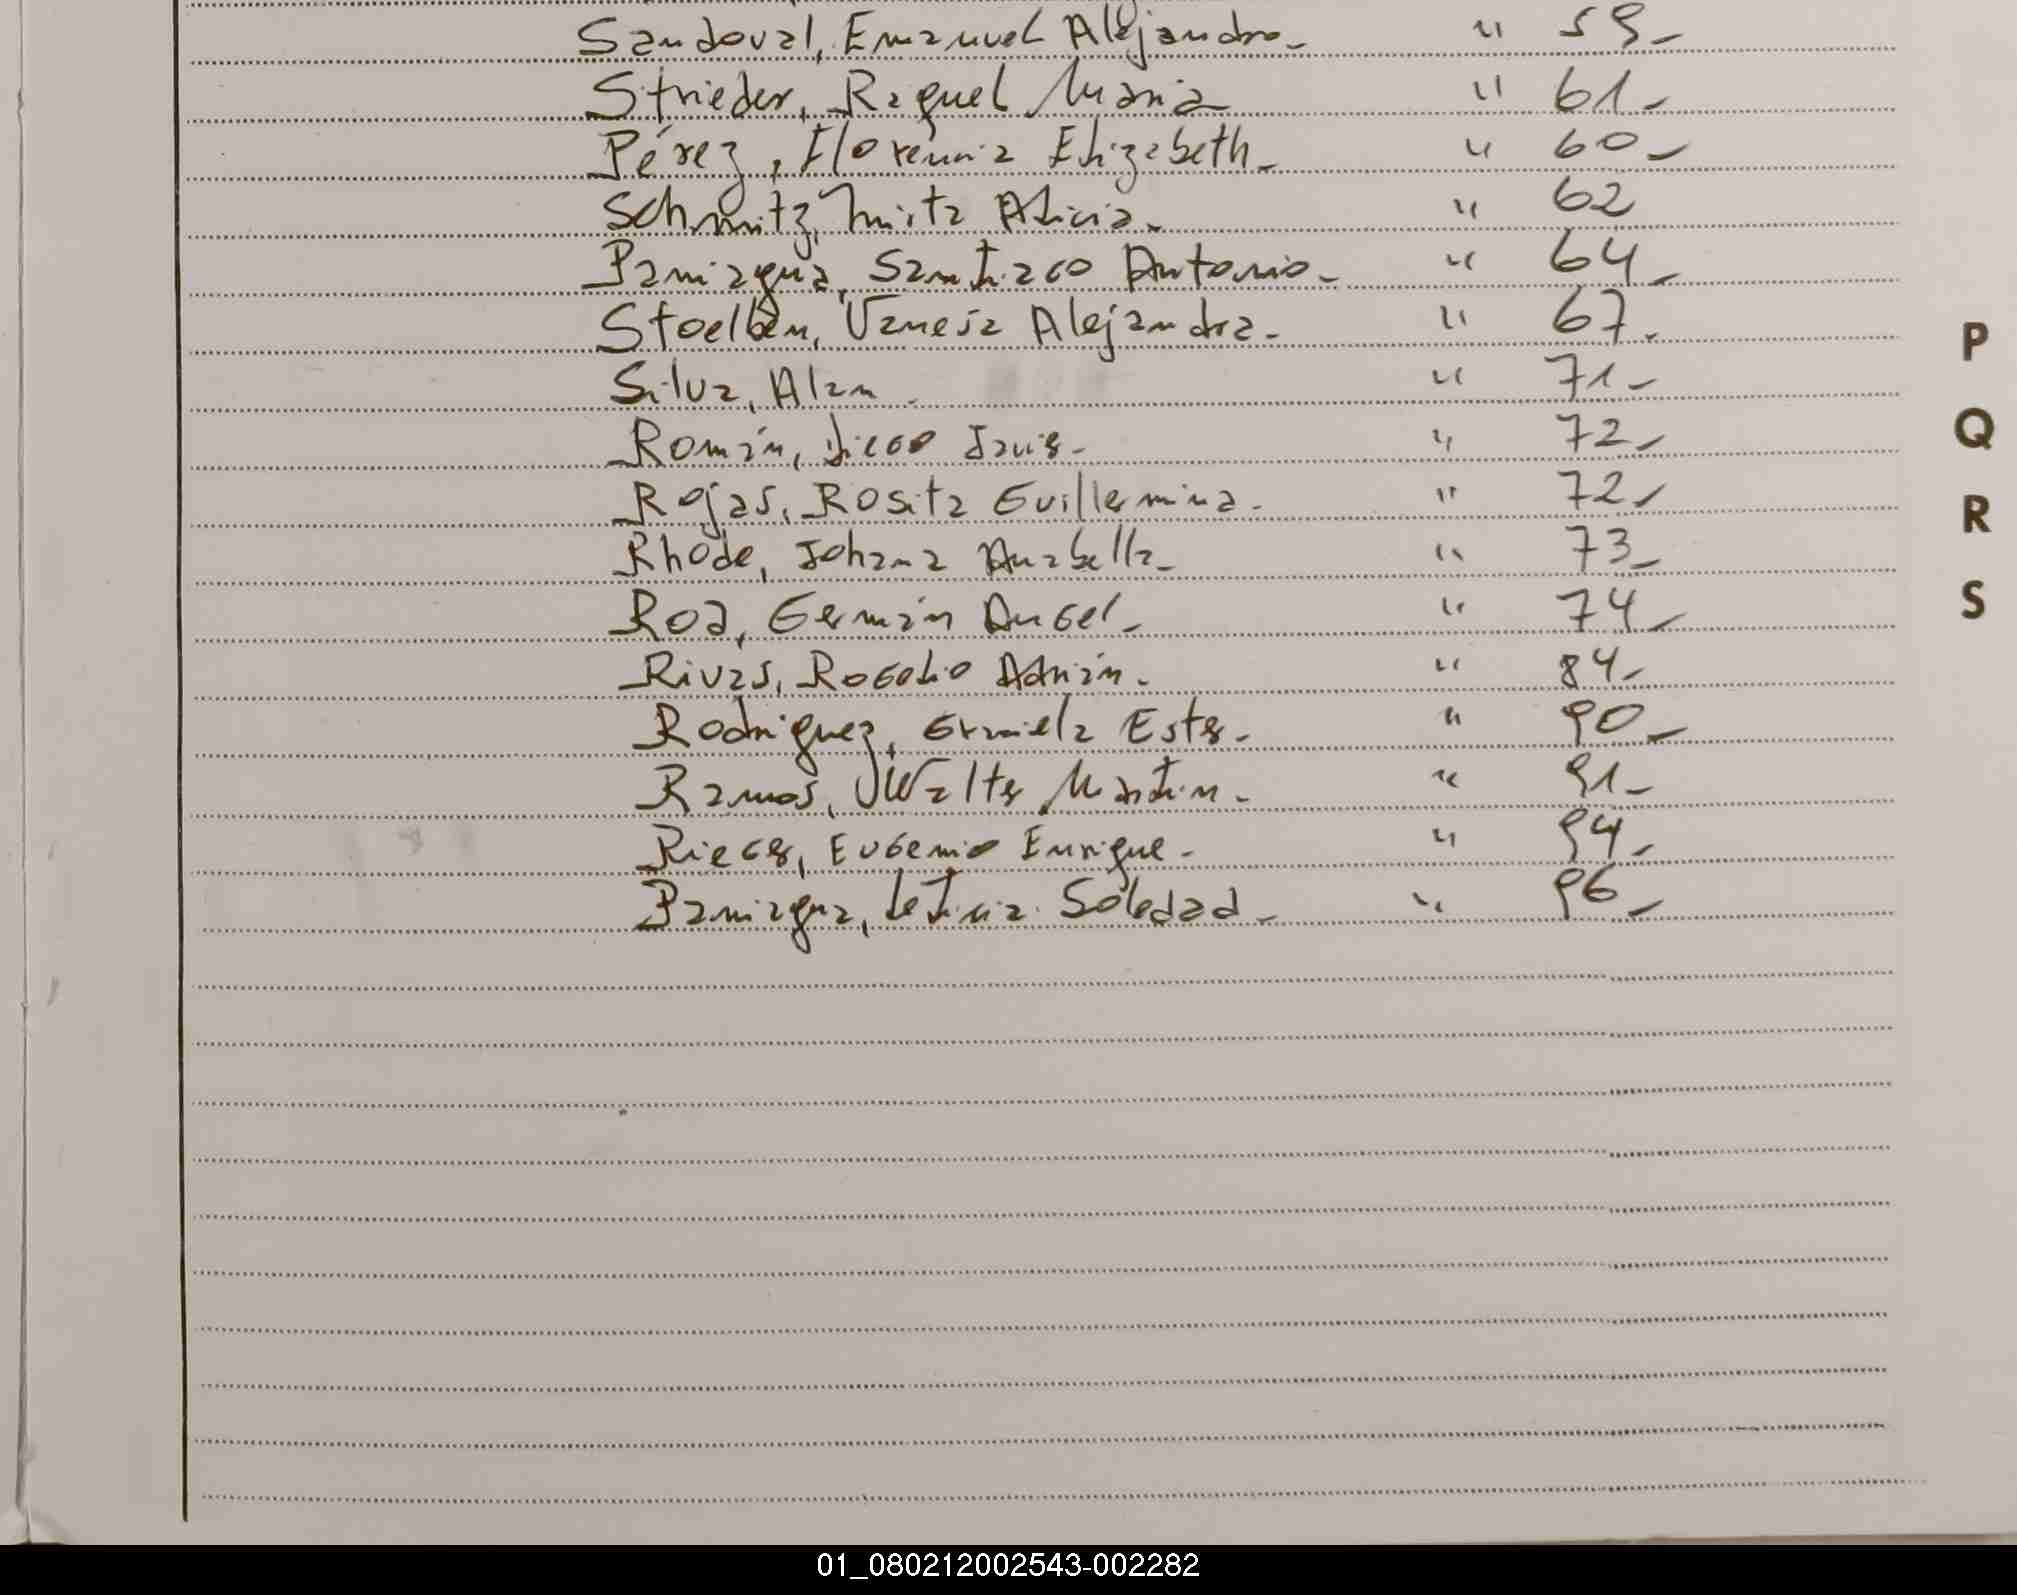 Sandoval, Emanuel Alejandro- " 59-
Strieder, Raquel Maria " 61-
Pérez, Florencia Elizabeth- " 60-
Schmitz, Mirta Alicia- " 62
Paniagua, Santiago Antonio- " 64-
Stoelben, Vanesa Alejandra- " 67-
Silva, Alan- " 71-
Román, Diego Javier- " 72-
Rojas, Rosita Guillermina- " 72-
Rhode, Johana Anabella- " 73-
Roa, Germán Angel- " 74-
Rivas, Rogelio Adrián- " 84-
Rodriguez, Graciela Ester- " 90-
Ramos, Walter Martin- " 91-
Rieger, Eugenio Enrique- " 94-
Paniagua, Leticia Soledad- " 96-
P
Q
R
S
01_080212002543-002282